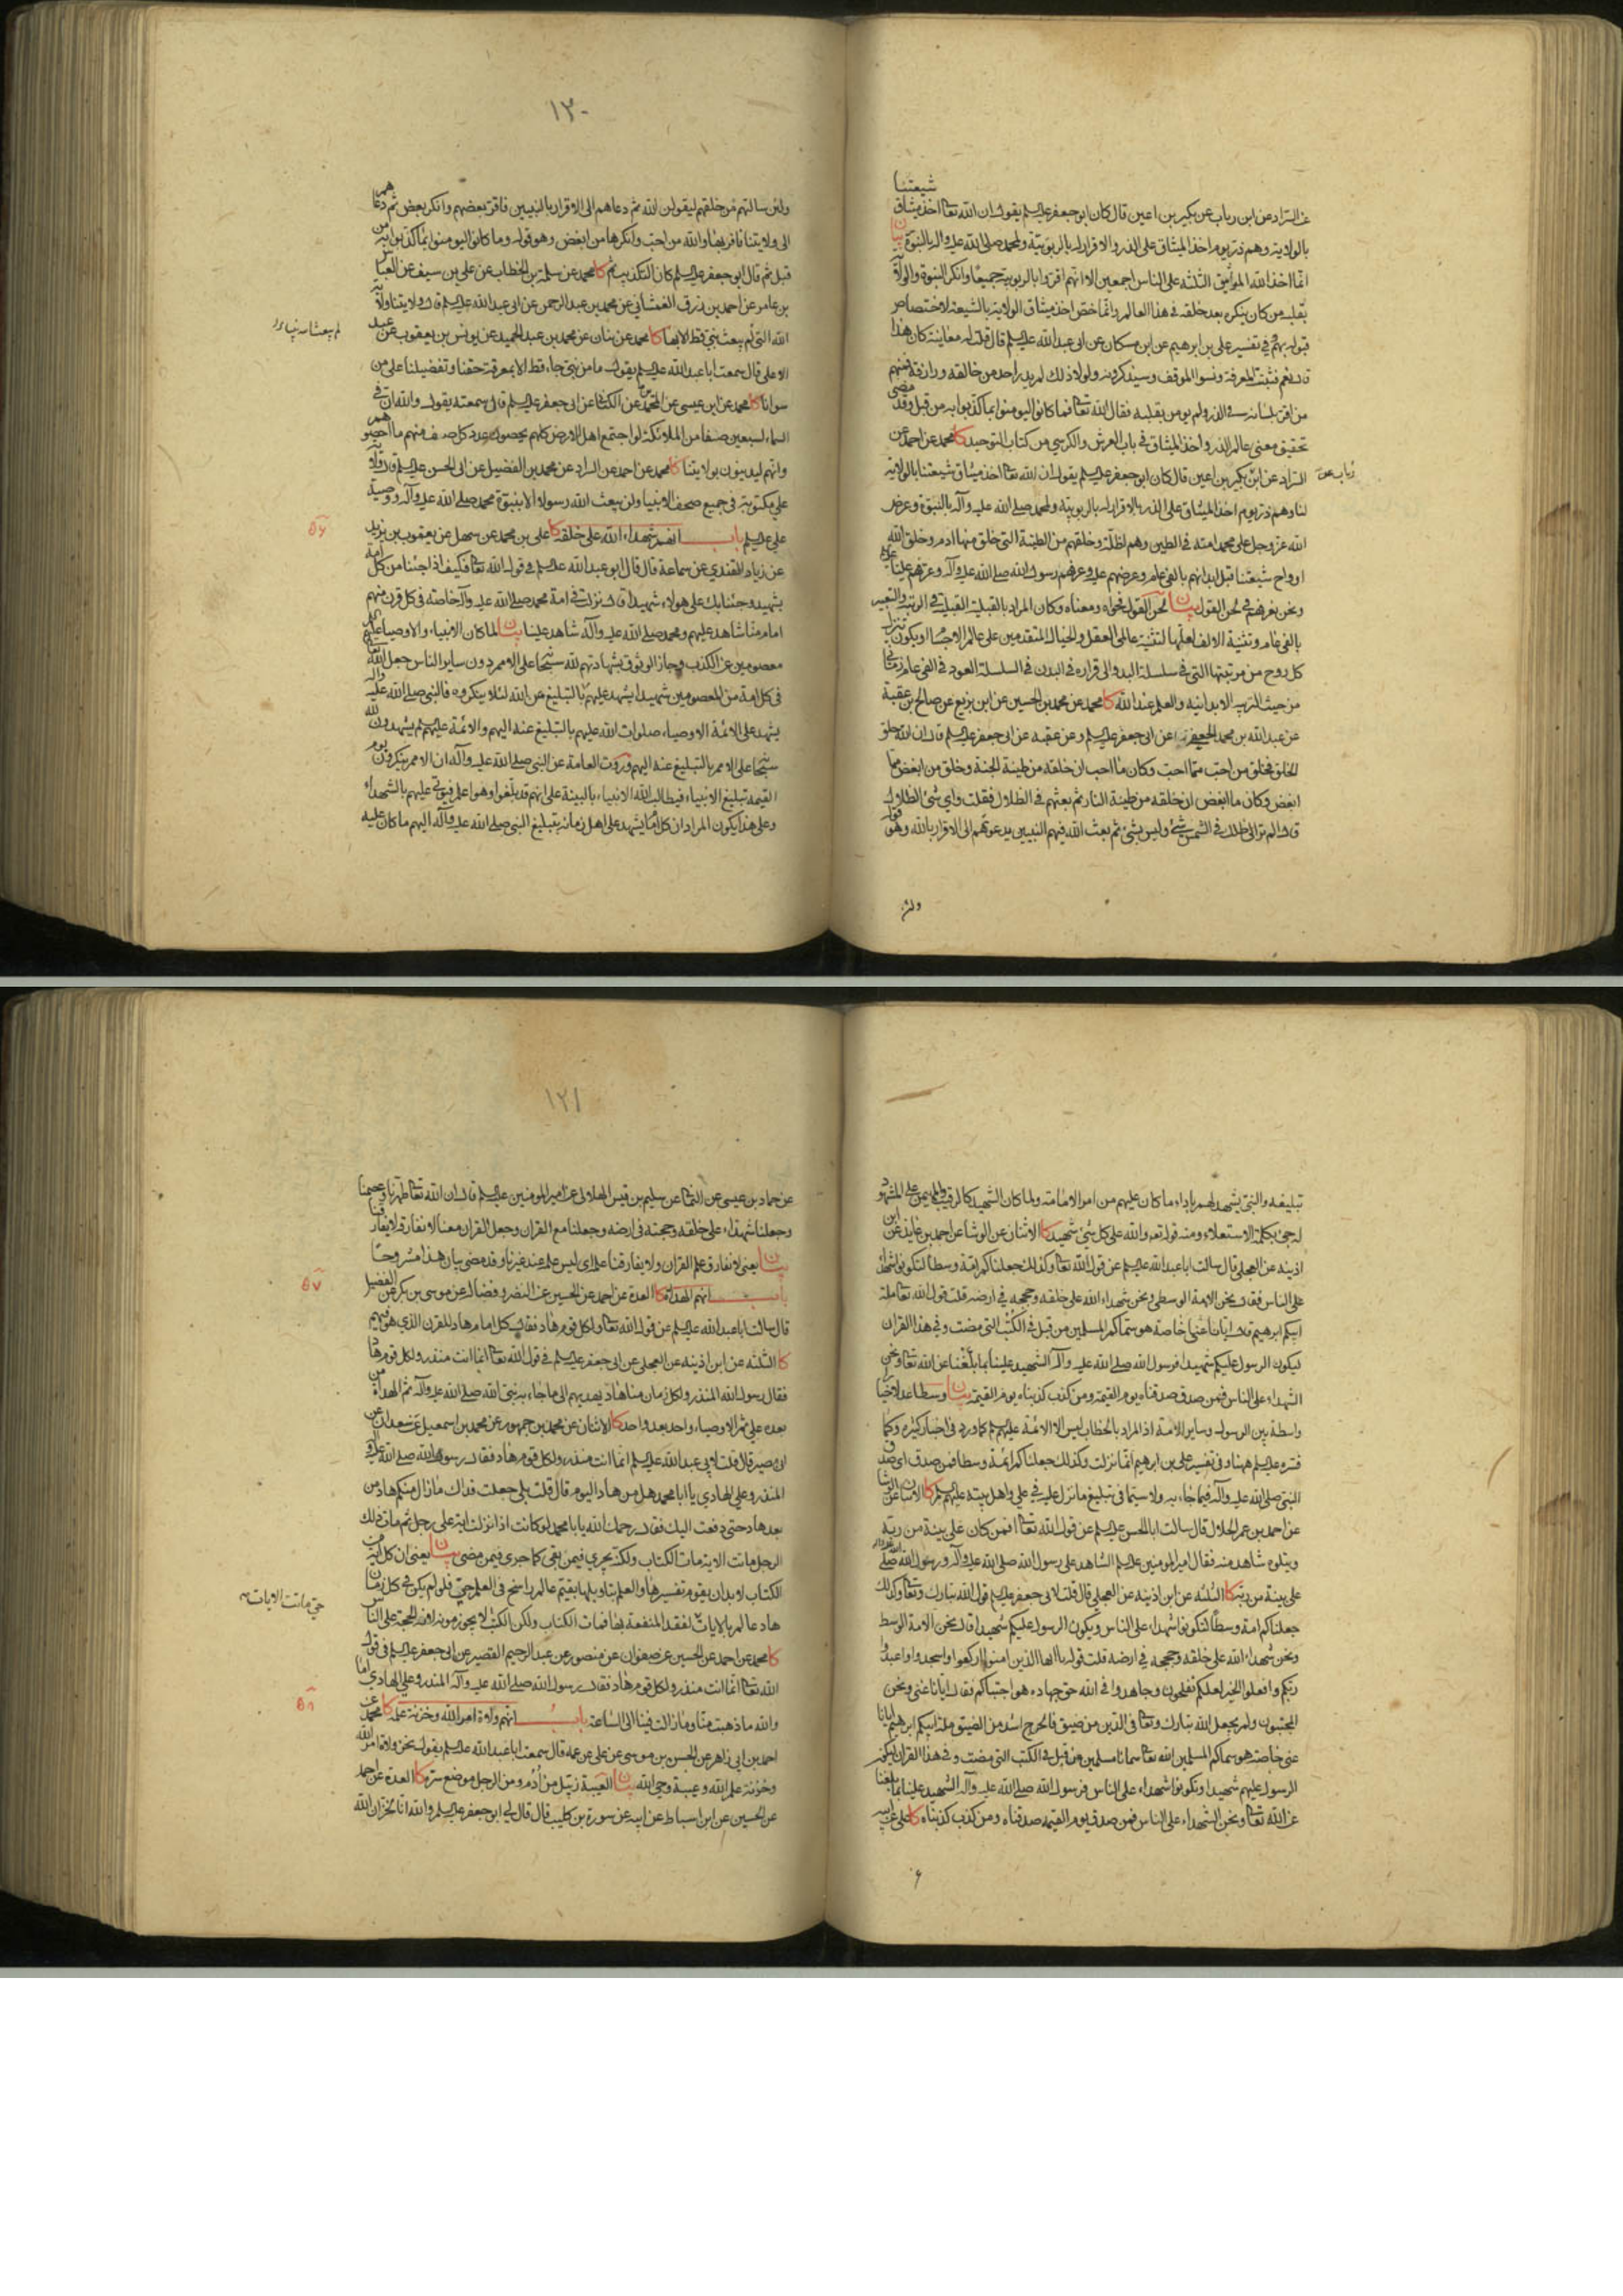 شيعتنا
عن السراد عن ابن رباب عن بكير بن اعين قال كان ابو جعفر عليه السلم يقول ان الله تعا اخذ ميثاق
بالولاية وهم ذر يوم اخذ الميثاق على الذر والاقرار له بالربوبية ولمحمد صلى الله عليه واله بالنبوة بيان
انما اخذ الله المواثيق الثلثة على الناس اجمعين الا انهم اقروا بالربوبية جميعا وانكر النبوة والولاية
بقلبه من كان ينكره بعد خلقه في هذا العالم وانما خص اخذ ميثاق الولاية بالشيعة لاختصاص
قبوله بهم في تفسير علي بن ابرهيم عن ابن مسكان عن ابي عبد الله عليه السلم قال قلت له معاينة كان هذا
قال نعم فثبتت المعرفة ونسوا الموقف وسيذكرونه ولولا ذلك لم يدر احد من خالقه ورازقه فمنهم
من اقر بلسانه في الذر ولم يومن بقلبه فقال الله تعا فما كانوا ليومنوا بما كذبوا به من قبل وقد مضى
تحقيق معنى عالم الذر واخذ الميثاق في باب العرش والكرسي من كتاب التوحيد كا محمد عن احمد عن
السراد عن ابن بكير بن اعين قال كان ابو جعفر عليه السلم يقول ان الله تعا اخذ ميثاق شيعتنا بالولاية
رباب عن
لنا وهم ذر يوم اخذ الميثاق على الذر بالاقرار له بالربوبية ولمحمد صلى الله عليه وآله بالنبوة وعرض
الله عز وجل على محمد امته في الطين وهم اظلة وخلقهم من الطينة التي خلق منها ادم وخلق الله
ارواح شيعتنا قبل ابدانهم بالفي عام وعرضهم عليه وعرفهم رسول الله صلى الله عليه وآله وعرفهم عليا
ونحن نعرفهم في لحن القول بيان لحن القول فحواه ومعناه وكان المراد بالقبلية القبلية في الرتبة والتعبير
بالفي عام وتثنية الالف لعلها لتثنية عالمي العقل والخيال المتقدمين على عالم الاجسام او يكون تنزل
كل روح من مرتبتها التي في سلسلة البدو الى قراره في البدن في السلسلة العود في الفي عام زماني
من حيث الترتيه الابدانية والعلم عند الله كا محمد عن محمد بن الحسين عن ابن بزيع عن صالح بن عقبة
عن عبد الله بن محمد الجعفي عن ابي جعفر عليه السلم وعن عقبه عن ابي جعفر عليه السلم قال ان الله خلق
الخلق فخلق من احب مما احب وكان ما احب ان خلقه من طينة الجنة وخلق من ابغض مما
ابغض وكان ما ابغض ان خلقه من طينة النار ثم بعثهم في الظلال فقلت واي شئ الظلال
قال الم تر الى ظلك في الشمس شئ وليس بشئ ثم بعث الله فيهم النبيين يدعوهم الى الاقرار بالله وهو قوله
ولئن
١٢٠
ولئن سالتهم من خلقهم ليقولن الله ثم دعاهم الى الاقرار بالنبيين فاقر بعضهم وانكر بعض ثم دعاهم
الى ولايتنا فاقر بها والله من احب وانكرها من ابغض وهو قوله وما كانوا ليومنوا بما كذبوا به من
قبل ثم قال ابو جعفر عليه السلم كان التكذيب ثم كا محمد عن سلمة بن الخطاب عن علي بن سيف عن العباس
بن عامر عن احمد بن رزق الغمشاني عن محمد بن عبد الرحمن عن ابي عبد الله عليه السلم قال ولايتنا ولاية
الله التي لم يبعث نبي قط الا بها كا محمد عن بنان عن محمد بن عبد الحميد عن يونس بن يعقوب عن عبد
لم يبعث الله نبيا
الاعلى قال سمعت ابا عبد الله عليه السلم يقول ما من نبي جاء قط الا بمعرفة حقنا وتفضيلنا على من
سوانا كا محمد عن ابن عيسى عن المحمدين عن الكناني عن ابي جعفر عليه السلم قال سمعته يقول والله ان في
السماء لسبعين صفا من الملائكة لو اجتمع اهل الارض كلهم يحصون عدد كل صف منهم ما احصوهم
وانهم ليدينون بولايتنا كا محمد عن احمد عن السراد عن محمد بن الفضيل عن ابي الحسن عليه السلم قال ولاية
علي مكتوبة في جميع صحف الانبياء ولن يبعث الله رسولا الا بنبوة محمد صلى الله عليه وآله ووصية
علي عليه السلم باب انهم شهداء الله على خلقه كا علي بن محمد عن سهل عن يعقوب بن يزيد
٥٦
عن زياد القندي عن سماعة قال قال ابو عبد الله عليه السلم في قول الله تعا فكيف اذا جئنا من كل امة
بشهيد وجئنا بك على هولاء شهيدا قال نزلت في امة محمد صلى الله عليه وآله خاصة في كل قرن منهم
امام منا شاهد عليهم ومحمد صلى الله عليه وآله شاهد علينا بيان لما كان الانبياء والاوصياء عليهم
معصومين عن الكذب وجاز الوثوق بشهادتهم لله سبحانه على الامم دون ساير الناس جعل الله
في كل امة من المعصومين شهيدا يشهد عليهم بالتبليغ عن الله لئلا ينكروه فالنبي صلى الله عليه واله
يشهد على الائمة الاوصياء صلوات الله عليهم بالتبليغ عنه اليهم والائمة عليهم السلم يشهدون لله
سبحانه على الامم بالتبليغ عنه اليهم وروت العامة عن النبي صلى الله عليه وآله ان الامم ينكرون يوم
القيمة تبليغ الانبياء فيطالب الله الانبياء بالبينة على انهم قد بلغوا وهو اعلم فيوتى عليهم بالشهداء
وعلى هذا يكون المراد ان كل امام يشهد على اهل زمانه بتبليغ النبي صلى الله عليه وآله اليهم ما كان عليه
تبليغه والنبي يشهد لهم باداء ما كان عليهم من امر الامامة ولما كان الشهيد كالرقيب والمهيمن على المشهود
له جئ بكلمة الاستعلاء ومنه قوله تعا والله على كل شئ شهيد كا الاثنان عن الوشا عن احمد بن عايذ عن ابن
اذينه عن العجلي قال سالت ابا عبد الله عليه السلم عن قول الله تعا وكذلك جعلناكم امة وسطا لتكونوا شهداء
على الناس فقال نحن الامة الوسطى ونحن شهداء الله على خلقه وحججه في ارضه قلت قول الله تعا ملة
ابيكم ابرهيم قال ايانا عنى خاصة هو سماكم المسلمين من قبل في الكتب التي مضت وفي هذا القران
ليكون الرسول عليكم شهيدا فرسول الله صلى الله عليه وآله الشهيد علينا بما بلغنا عن الله تعا ونحن
الشهداء على الناس فمن صدق صدقناه يوم القيمة ومن كذب كذبناه يوم القيمة بيان وسطا عدلا خيارا
واسطة بين الرسول وساير الامة اذ المراد بالخطاب ليس الا الائمة عليهم السلم كما ورد في اخبار كثيرة وكما
فسره عليه السلم ههنا وفي تفسير علي بن ابرهيم انما نزلت وكذلك جعلناكم ائمة وسطا فمن صدق اي صدق
النبي صلى الله عليه وآله فيما جاء به ولا سيما في تبليغ ما نزل عليه في علي واهل بيته عليهم السلم كا الاثنان عن الوشا
عن احمد بن عمر الحلال قال سالت ابا الحسن عليه السلم عن قول الله تعا افمن كان على بينة من ربه
ويتلوه شاهد منه فقال امير المومنين عليه السلم الشاهد على رسول الله صلى الله عليه وآله ورسول الله صلى
على بينة من ربه كا الثلثة عن ابن اذينه عن العجلي قال قلت لابي جعفر عليه السلم قول الله تبارك وتعا وكذلك
جعلناكم امة وسطا لتكونوا شهداء على الناس ويكون الرسول عليكم شهيدا قال نحن الامة الوسط
ونحن شهداء الله على خلقه وحججه في ارضه قلت قوله يا ايها الذين امنوا اركعوا واسجدوا واعبدوا
ربكم وافعلوا الخير لعلكم تفلحون وجاهدوا في الله حق جهاده هو اجتباكم قال ايانا عنى ونحن
المجتبون ولم يجعل الله تبارك وتعا في الدين من ضيق فالحرج اشد من الضيق ملة ابيكم ابرهيم ايانا
عنى خاصة هو سماكم المسلمين الله تعا سمانا مسلمين من قبل في الكتب التي مضت وفي هذا القران ليكون
الرسول عليهم شهيدا وتكونوا شهداء على الناس فرسول الله صلى الله عليه وآله الشهيد علينا بما بلغنا
عن الله تعا ونحن الشهداء على الناس فمن صدق يوم القيمة صدقناه ومن كذب كذبناه كا علي عن ابيه
١٢١
عن حماد بن عيسى عن اليماني عن سليم بن قيس الهلالي عن امير المومنين عليه السلم قال ان الله تعا طهرنا وعصمنا
وجعلنا شهداء على خلقه وحجته في ارضه وجعلنا مع القران وجعل القران معنا لا نفارقه ولا يفارقنا
بيان يعني لا نفارق علم القران ولا يفارقنا علمه اي ليس علمه عند غيرنا وقد مضى بيان هذا مشروحا
باب انهم الهداة كا العدة عن احمد عن الحسين عن النضر وفضالة عن موسى بن بكر عن الفضيل
٥٧
قال سالت ابا عبد الله عليه السلم عن قول الله تعا ولكل قوم هاد فقال كل امام هاد للقرن الذي هو فيهم
كا الثلثة عن ابن اذينه عن العجلي عن ابي جعفر عليه السلم في قول الله تعا انما انت منذر ولكل قوم هاد
فقال رسول الله المنذر ولكل زمان منا هاد يهديهم الى ما جاء به نبي الله صلى الله عليه وآله ثم الهداة من
بعده علي ثم الاوصياء واحد بعد واحد كا الاثنان عن محمد بن جمهور عن محمد بن اسمعيل عن سعدان عن
ابي بصير قال قلت لابي عبد الله عليه السلم انما انت منذر ولكل قوم هاد فقال رسول الله صلى الله عليه وآله
المنذر وعلي الهادي يا ابا محمد هل من هاد اليوم قال قلت بلى جعلت فداك ما زال منكم هاد من
بعد هاد حتى دفعت اليك فقال رحمك الله يا با محمد لو كانت اذا نزلت اية على رجل ثم مات ذلك
الرجل ماتت الاية مات الكتاب ولكنه يجري فيمن بقي كما جرى فيمن مضى بيان يعني ان كل اية من
الكتاب لا بد ان يقوم تفسيرها والعلم بتاويلها بقيم عالم راسخ في العلم حي فلو لم يكن في كل زمان
حتى ماتت الايات
هاد عالم بالايات لفقد المنفعة بها فمات الكتاب ولكن الكتاب لا يجوز موته لانه الحجة على الناس
كا محمد عن احمد عن الحسين عن صفوان عن منصور عن عبد الرحيم القصير عن ابي جعفر عليه السلم في قول
الله تعا انما انت منذر ولكل قوم هاد فقال رسول الله صلى الله عليه وآله المنذر وعلي الهادي اما
والله ما ذهبت منا وما زالت فينا الى الساعة باب انهم ولاة امر الله وخزنة علمه كا محمد عن
٥٨
احمد بن ابي زاهر عن الحسن بن موسى عن علي عن عمه قال سمعت ابا عبد الله عليه السلم يقول نحن ولاة امر الله
وخزنة علم الله وعيبة وحي الله بيان العيبة زبيل من ادم ومن الرجل موضع سره كا العدة عن احمد
عن الحسين عن ابن اسباط عن ابيه عن سورة بن كليب قال قال لي ابو جعفر عليه السلم والله انا لخزان الله